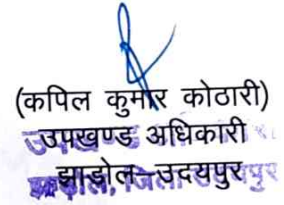 (कपिल कुमार कोठारी)
उपखण्ड अधिकारी
झाड़ोल–उदयपुर